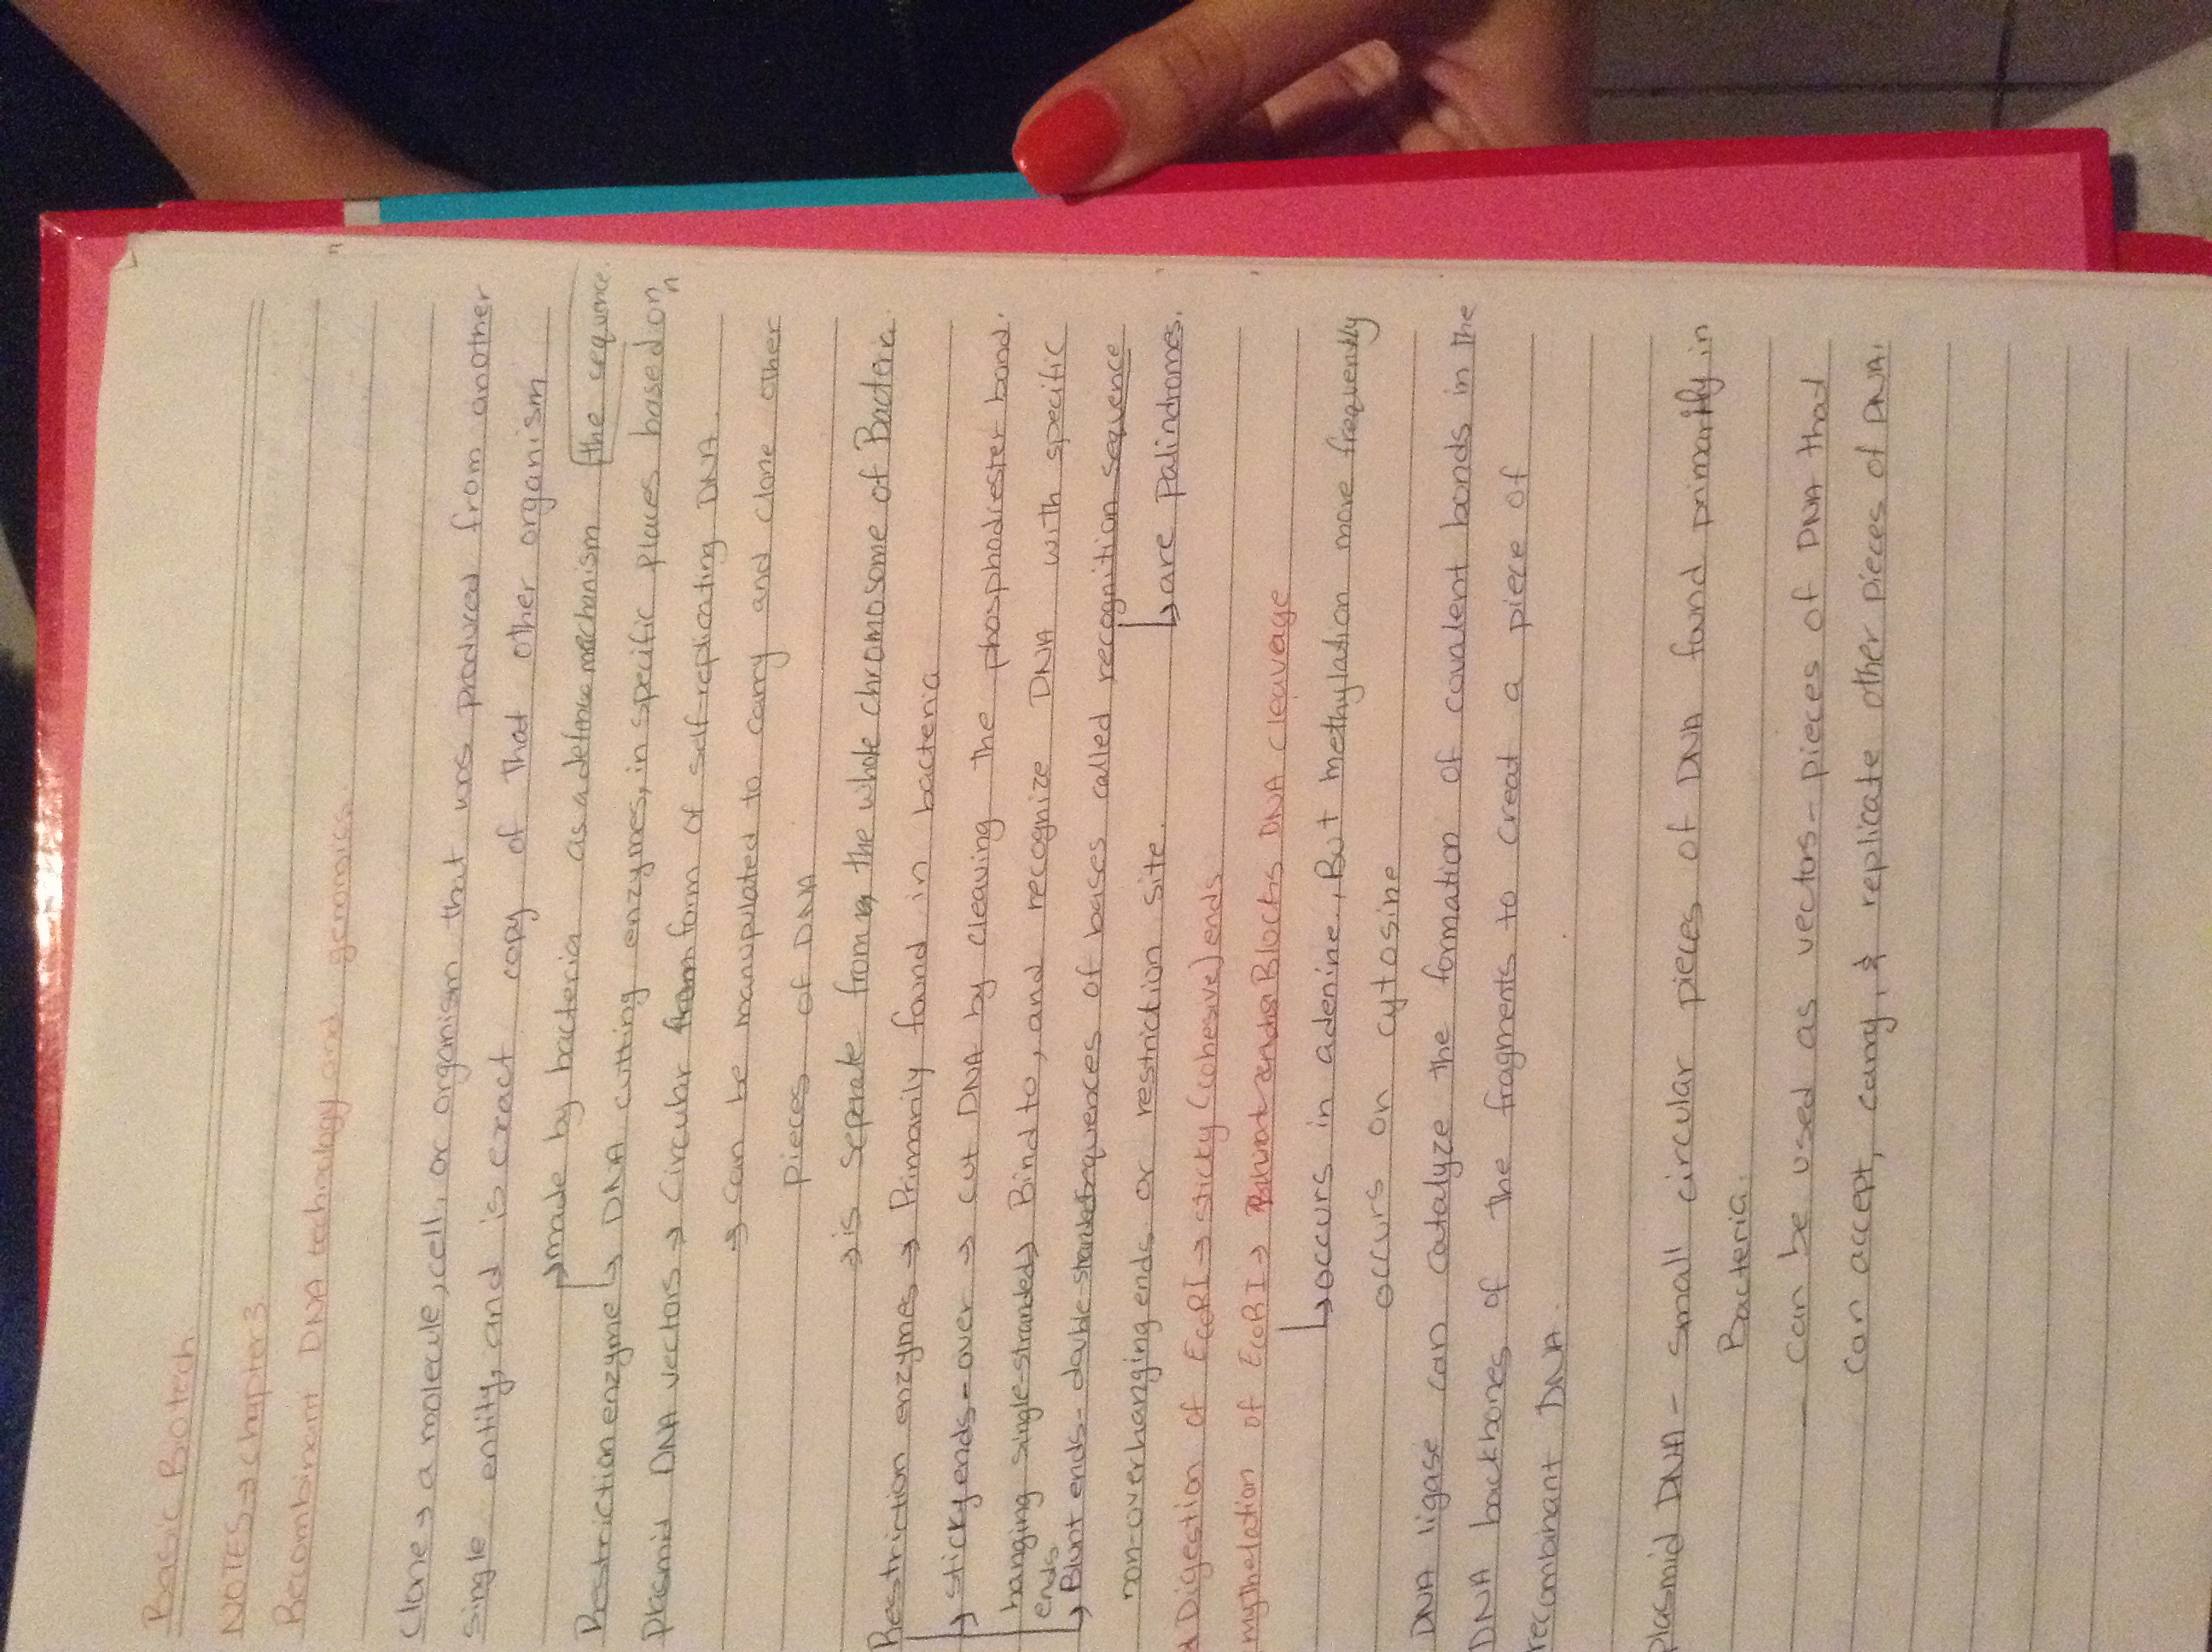 Basic Biotech
NOTES → chapter 3
Recombinant DNA technology and genomics
Clone → a molecule, cell, or organism that was produced from another
single entity, and is exact copy of that other organism
↳ made by bacteria as a defence mechanism [the sequence.
Restriction enzyme ↳ DNA cutting enzymes, in specific places based on
Plasmid DNA vectors → Circular form of self-replicating DNA.
→ can be manupulated to carry and clone other
pieces of DNA
→ is seperate from the whole chromosome of Bacteria.
Restriction enzymes → Primarily found in bacteria
↳ sticky ends - over → cut DNA by cleaving the phosphodiester bond.
hanging single-stranded → Bind to, and recognize DNA with specific
ends
↳ Blunt ends - double sequences of bases called recognition sequence
non-overhanging ends or restriction site. ↳ are palindromes.
Digestion of EcoRI → sticky (cohesive) ends
mythelation of EcoRI → Blocks DNA cleavage
↳ occurs in adenine, But methylation more frequently
occurs on cytosine
DNA ligase can catalyze the formation of covalent bonds in the
DNA backbones of the fragments to creat a piece of
recombinant DNA.
plasmid DNA - small circular pieces of DNA found primarily in
Bacteria.
- can be used as vectors - pieces of DNA that
can accept, carry, & replicate other pieces of DNA.